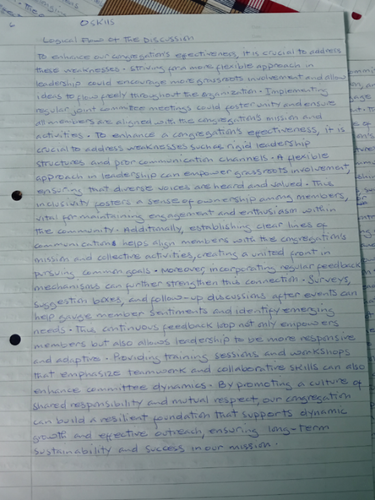 SKILLS
Logical Flow of the Discussion
To enhance our congregation's effectiveness, it is crucial to address
these weaknesses. Striving for a more flexible approach in
leadership could encourage more grassroots involvement and allow
ideas to flow freely throughout the organization. Implementing
regular joint committee meetings could foster unity and ensure
all members are aligned with the congregation's mission and
activities. To enhance a congregation's effectiveness, it is
crucial to address weaknesses such as rigid leadership
structures and poor communication channels. A flexible
approach in leadership can empower grassroots involvement,
ensuring that diverse voices are heard and valued. This
inclusivity fosters a sense of ownership among members,
vital for maintaining engagement and enthusiasm within
the community. Additionally, establishing clear lines of
communication helps align members with the congregation's
mission and collective activities, creating a united front in
pursuing common goals. Moreover, incorporating regular feedback
mechanisms can further strengthen this connection. Surveys,
suggestion boxes, and follow-up discussions after events can
help gauge member sentiments and identify emerging
needs. This continuous feedback loop not only empowers
members but also allows leadership to be more responsive
and adaptive. Providing training sessions and workshops
that emphasize teamwork and collaborative skills can also
enhance committee dynamics. By promoting a culture of
shared responsibility and mutual respect, our congregation
can build a resilient foundation that supports dynamic
growth and effective outreach, ensuring long-term
sustainability and success in our mission.